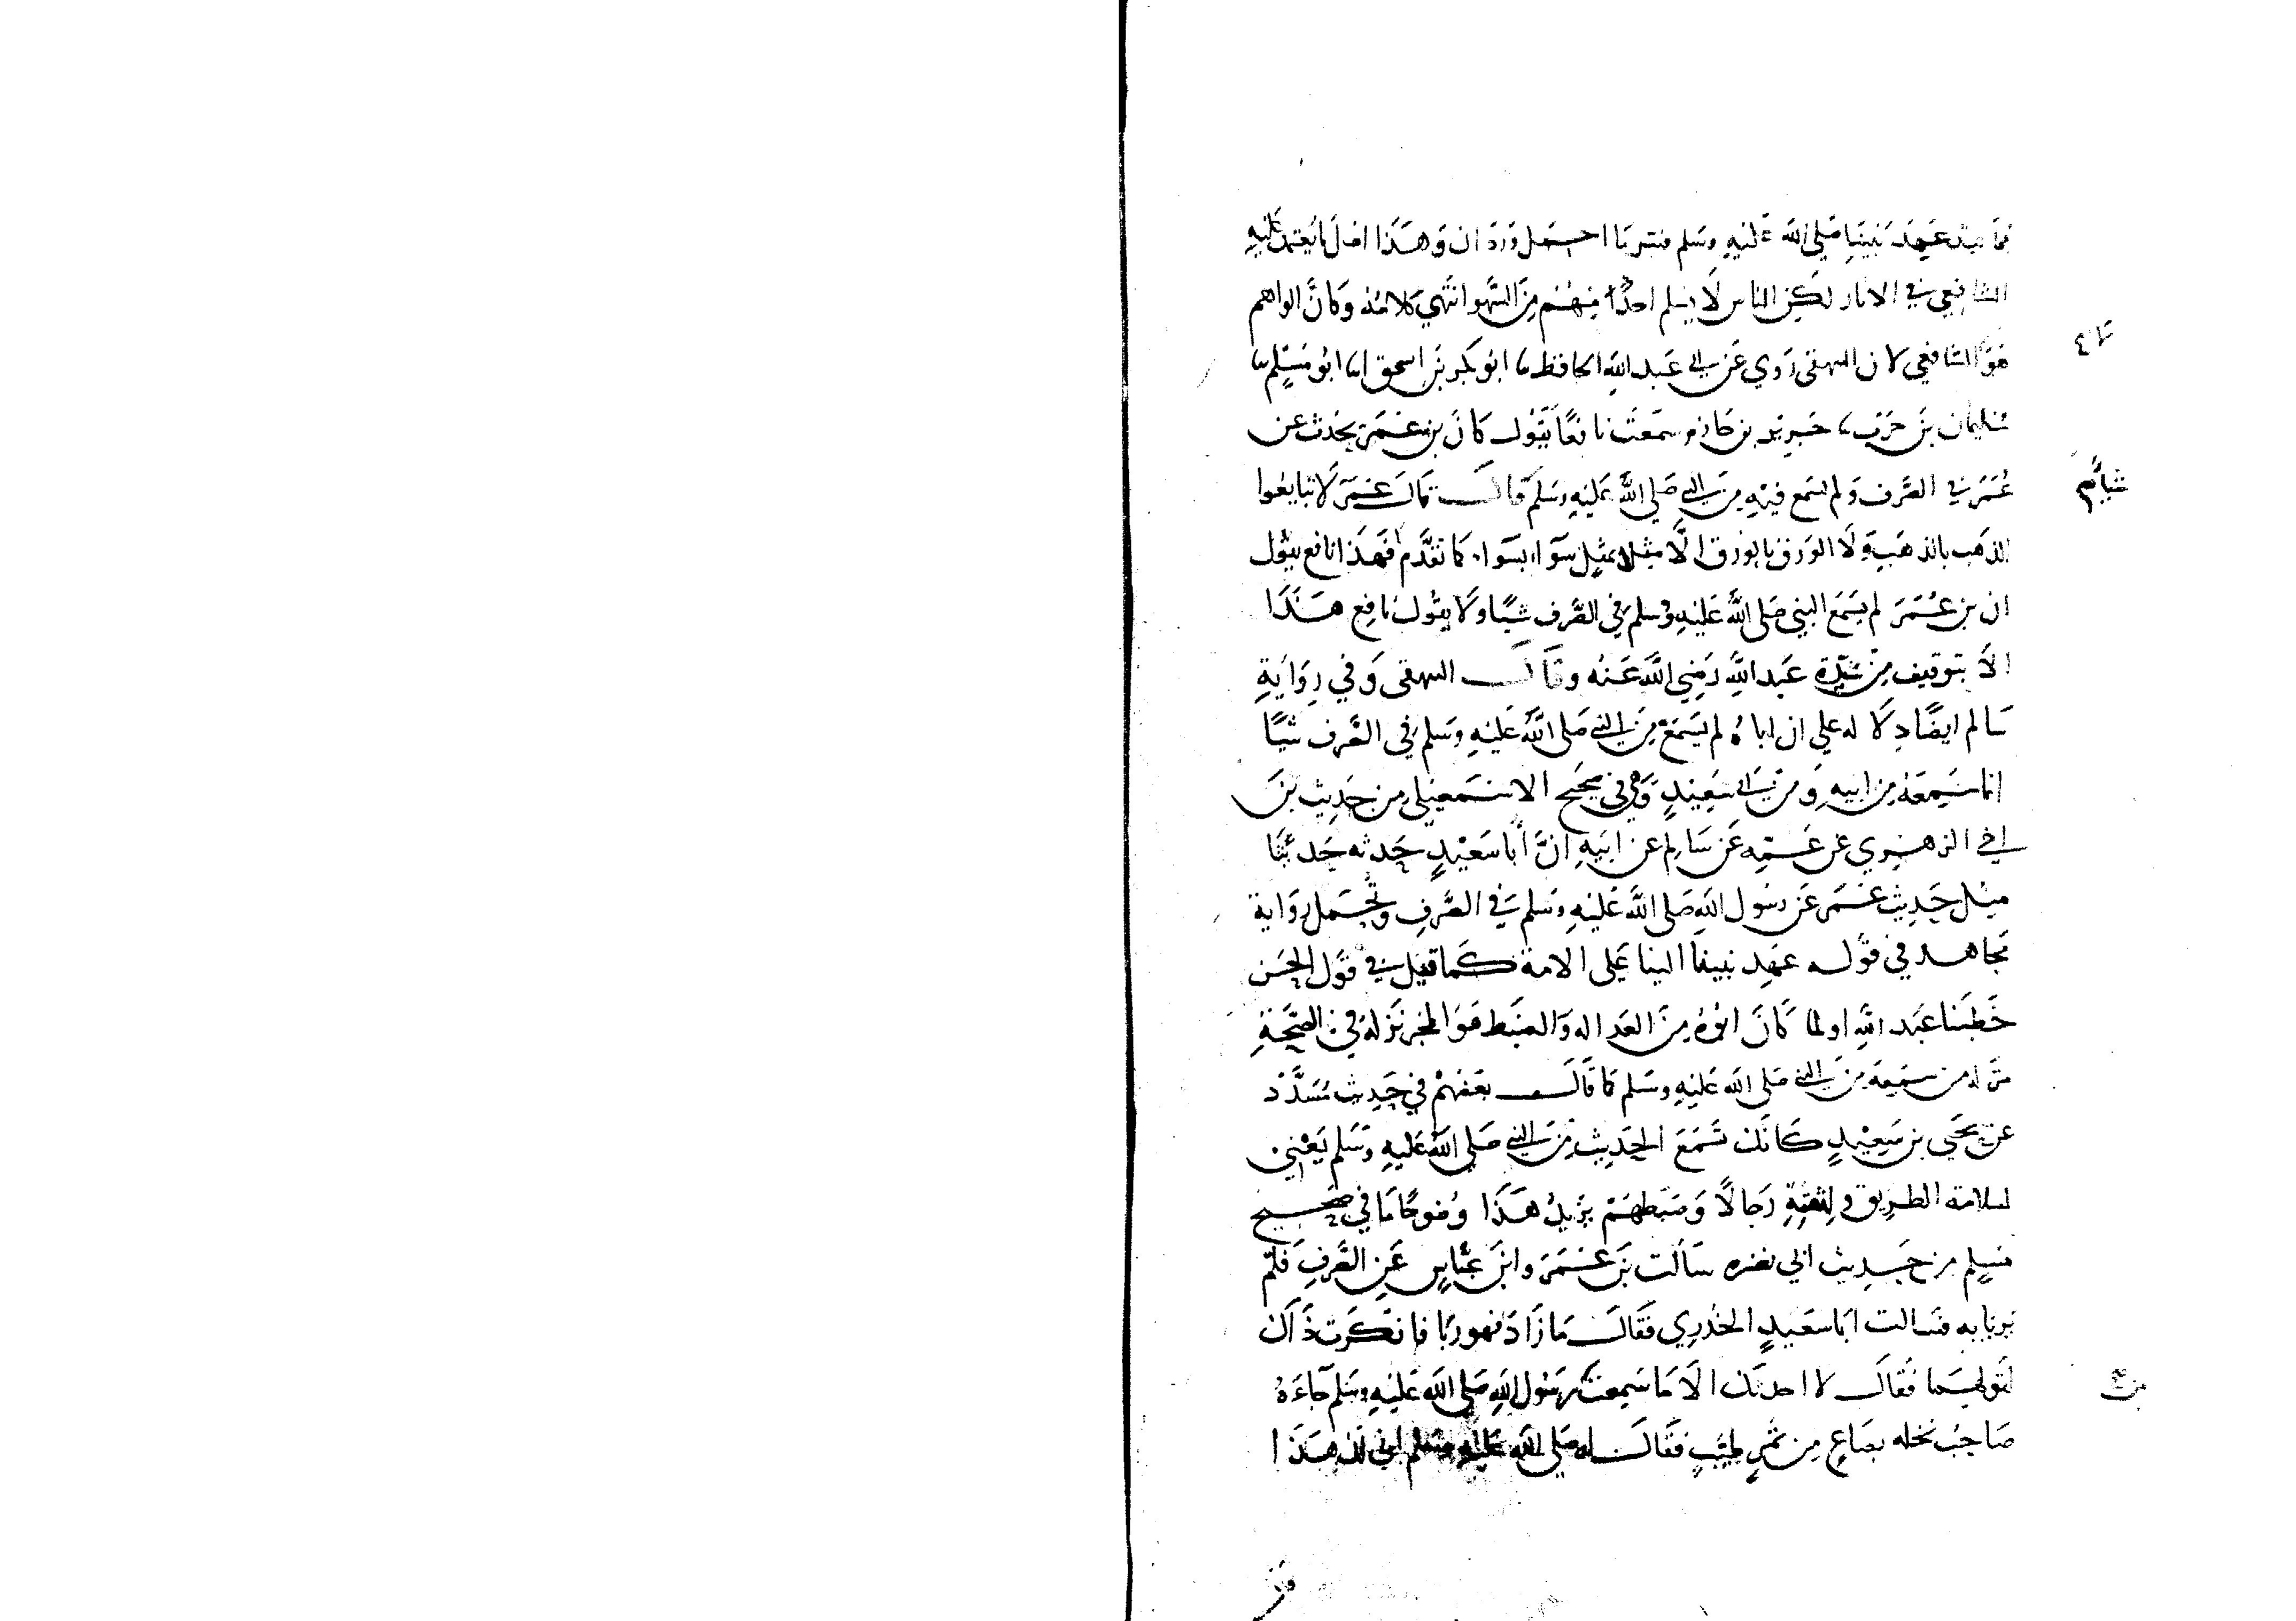 عهد نبينا صلى الله عليه وسلم وهذا اصل ما يعتمد عليه
الشافعي في الاثار لكن الناس لا يسلم احدا منهم من السهو انتهي كلامه وكان الواهم
هو الشافعي لان البيهقي روي عن ابي عبد الله الحافظ ابو بكر بن اسحق ابو مسلم
سليمان بن حرب جرير بن حازم سمعت نافعا يقول كان بن عمر يحدث عن
عمر في الصرف ولم يسمع فيه من النبي صلي الله عليه وسلم قال قال عمر لا تبايعوا
الذهب بالذهب ولا الورق بالورق الا مثلا بمثل سوا بسوا كما تقدم فهذا نافع يقول
ان بن عمر لم يسمع النبي صلى الله عليه وسلم في الصرف شيًا ولا يقول نافع هذا
الا بتوقيف من عبد الله رضي الله عنه وقال البيهقي وفي رواية
سالم ايضا دلاله علي ان اباه لم يسمع من النبي صلى الله عليه وسلم في الصرف شيًا
انما سمعه من ابيه ومن ابي سعيد وفي صحيح الاسمعيلي من حديث بن
اخي الزهري عن عمه عن سالم عن ابيه ان أبا سعيد حدثه حديثا
مثل حديث عمر عن رسول الله صلى الله عليه وسلم في الصرف وتحمل رواية
مجاهد في قوله عهد نبينا الينا على الامة كما قيل في قول الحسن
خطبنا عبد الله او لما كان ابوه من العداله والضبط هو المخبر نزله في الصحة
منزله من سمعه من النبي صلى الله عليه وسلم كما قال بعضهم في حديث مسدد
عن يحيى بن سعيد كانك تسمع الحديث من النبي صلى الله عليه وسلم يعني
لسلامة الطريق ولثقة رجالا وضبطهم يزيد هذا وضوحا ما في صحيح
مسلم من حديث ابي نضره سألت بن عمر وابن عباس عن الصرف فلم
يريا به فسالت ابا سعيد الخدري فقال ما زاد فهو ربا فانكرت ذلك
لقولهما فقال لا احدثك الا ما سمعت رسول الله صلى الله عليه وسلم جاءه
صاحب نخله بصاع من تمر طيب فقال له صلي الله عليه وسلم اني لك هذا